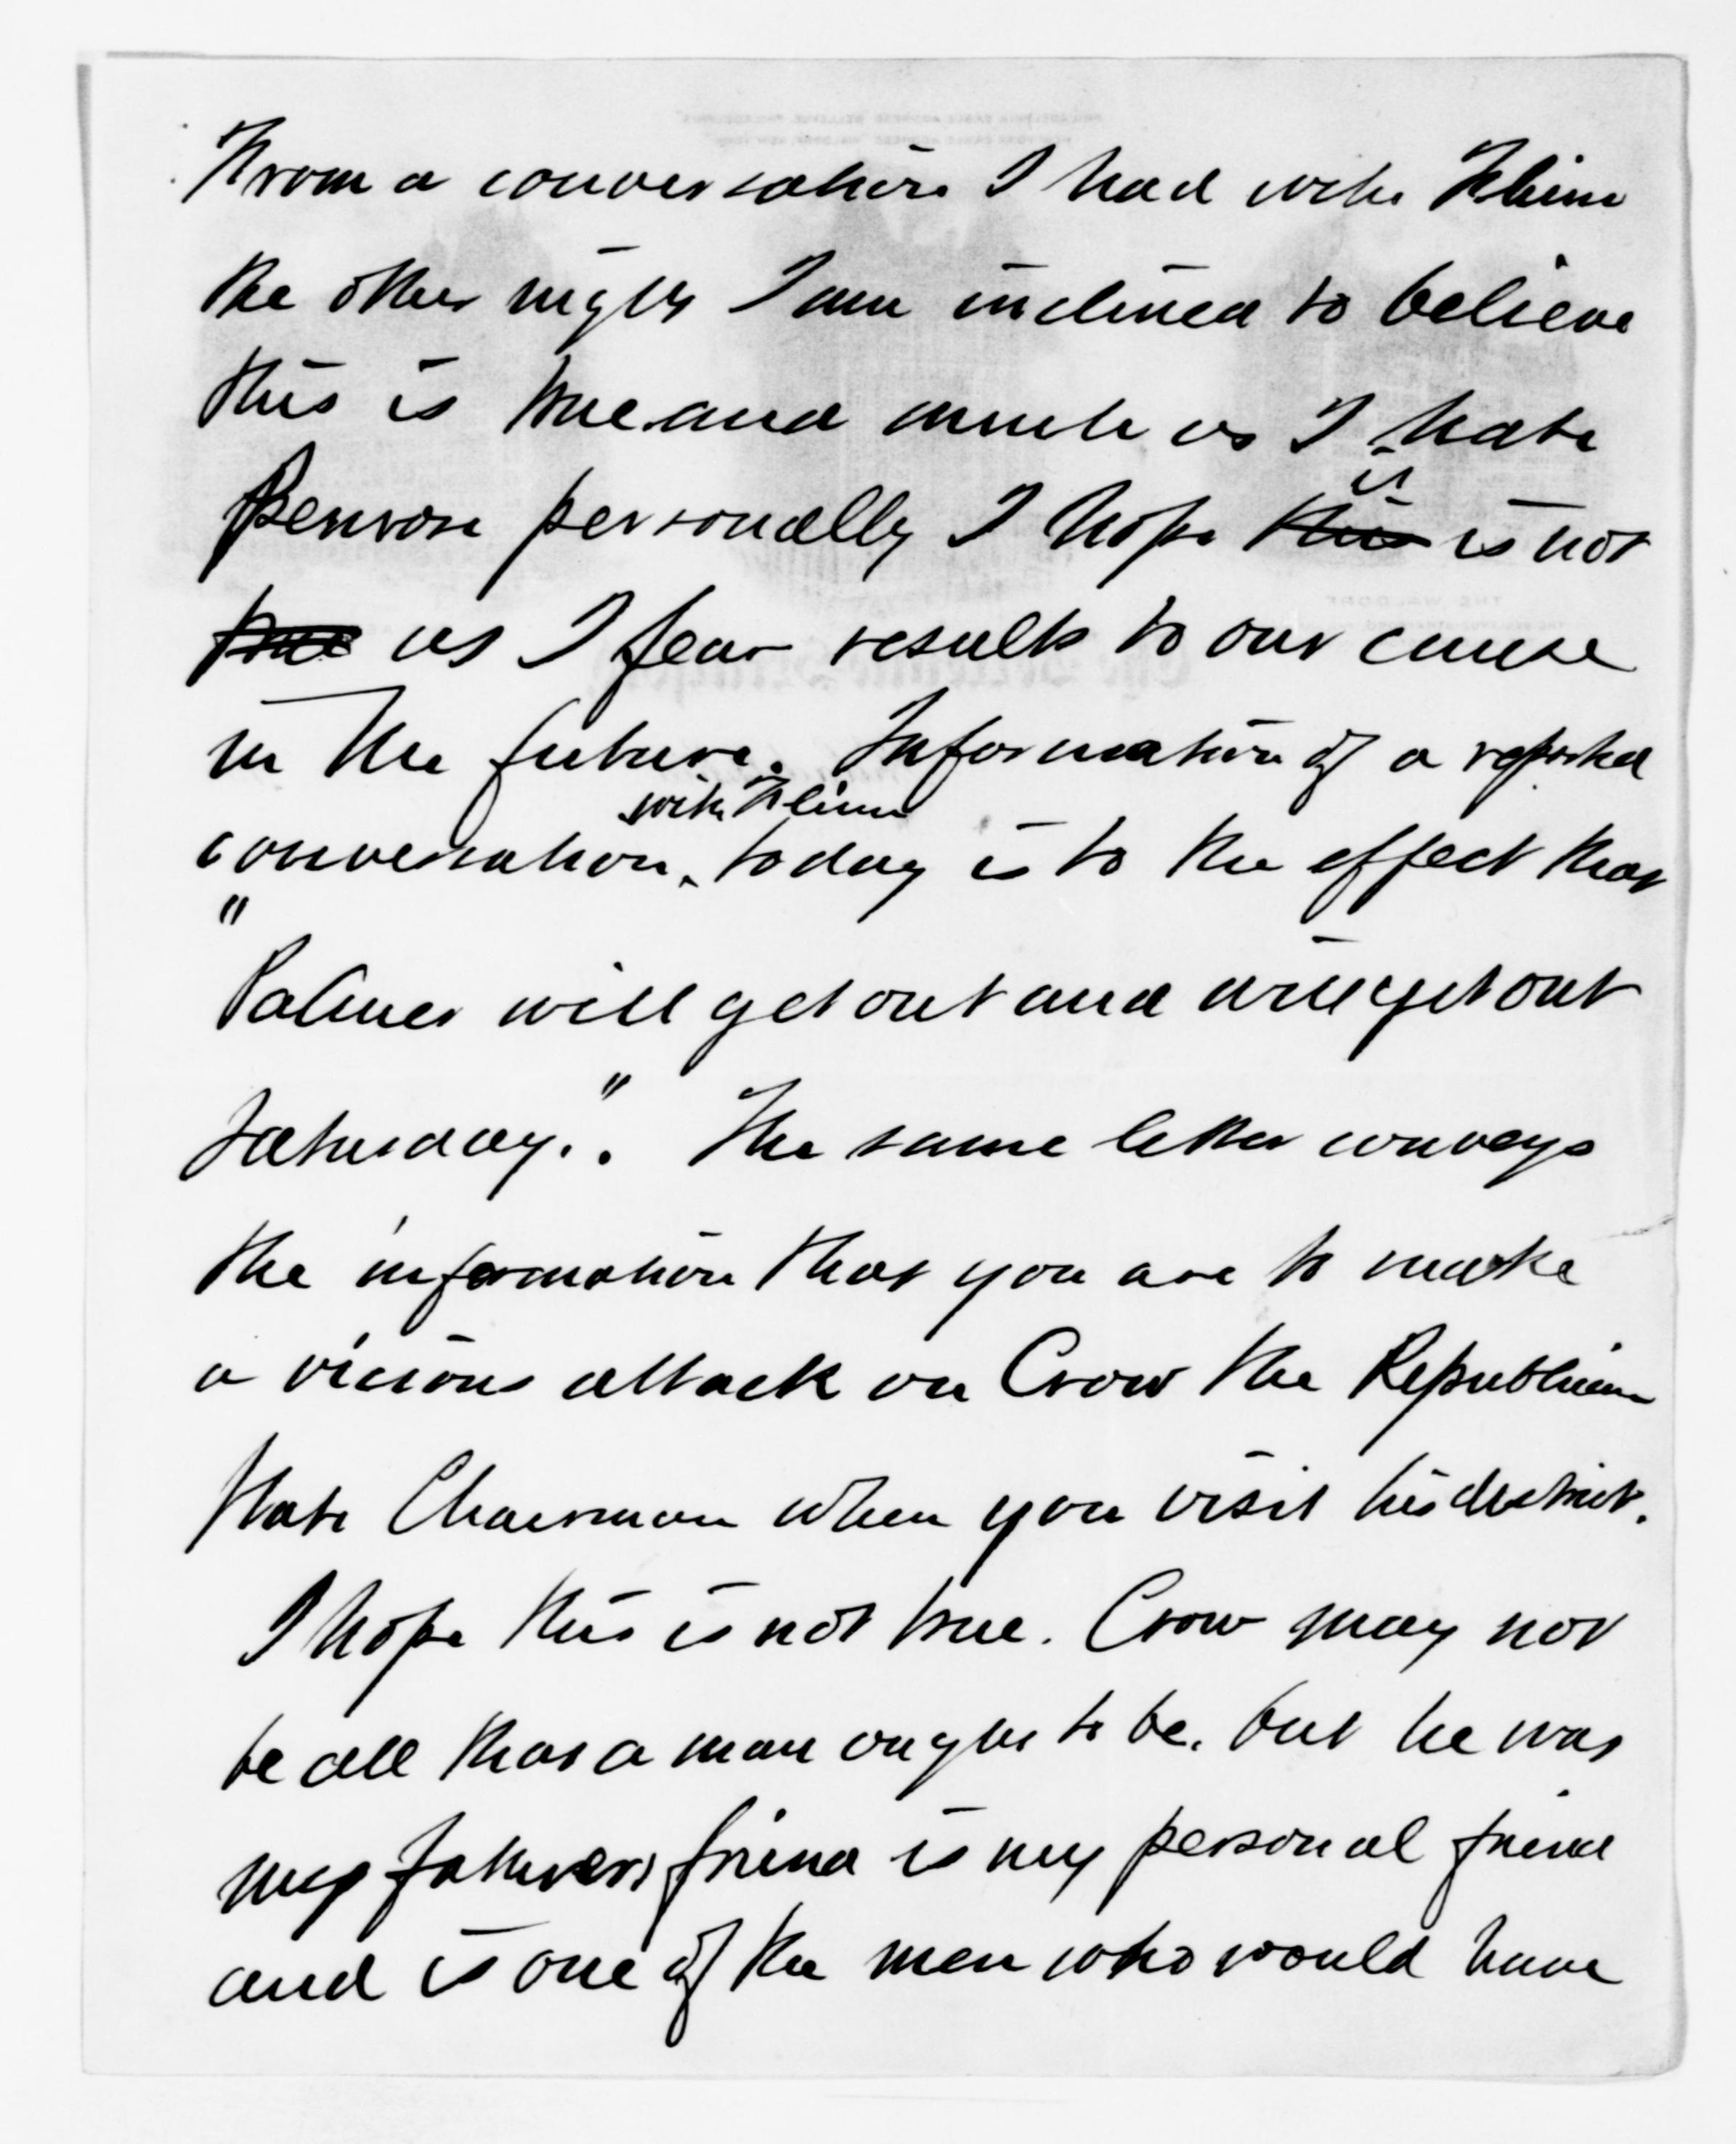 From a conversation I had with Flinn
the other night I am inclined to believe
this is true and much as I hate
Penrose personally I hope this it is not
true as I fear results to our cause
in the future. Information of a reported
conversation with Flinn today is to the effect that
"Palmer will get out and will get out
Saturday." The same letter conveys
the information that you are to make
a vicious attack on Crow the Republican
State Chairman when you visit his district.
I hope this is not true. Crow may not
be all that a man ought to be. but he was
my fathers friend is my personal friend
and is one of the men who would have